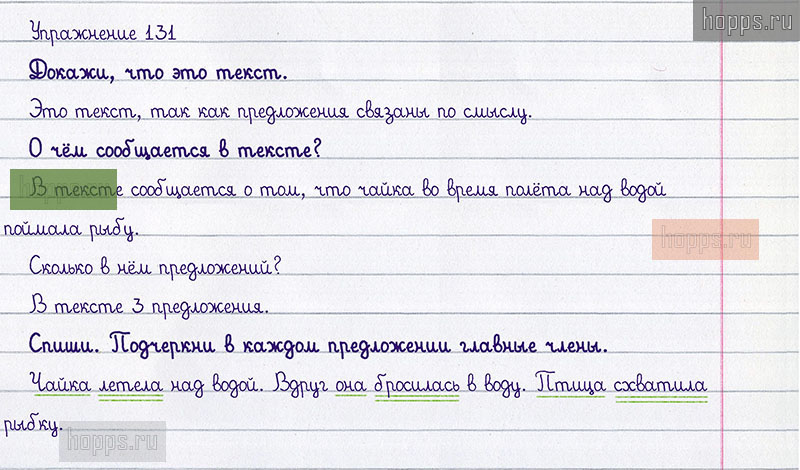 hopps.ru
Упражнение 131
Докажи, что это текст.
Это текст, так как предложения связаны по смыслу.
О чём сообщается в тексте?
В тексте сообщается о том, что чайка во время полёта над водой
поймала рыбу.
hopps.ru
Сколько в нём предложений?
В тексте 3 предложения.
Спиши. Подчеркни в каждом предложении главные члены.
Чайка летела над водой. Вдруг она бросилась в воду. Птица схватила
рыбку.
hopps.ru